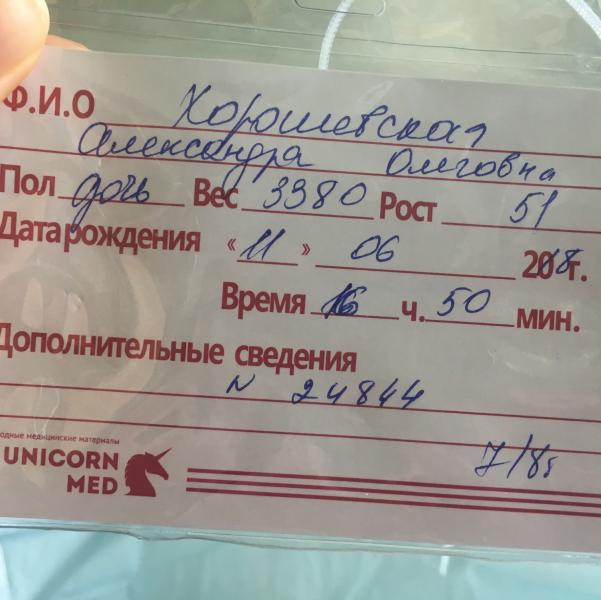 Ф.И.О Хорошевская
Александра Олеговна
Пол дочь Вес 3380 Рост 51
Дата рождения «11» 06 2018г.
Время 16 ч. 50 мин.
Дополнительные сведения
N 24844
одные медицинские материалы
UNICORN
MED
7/8б